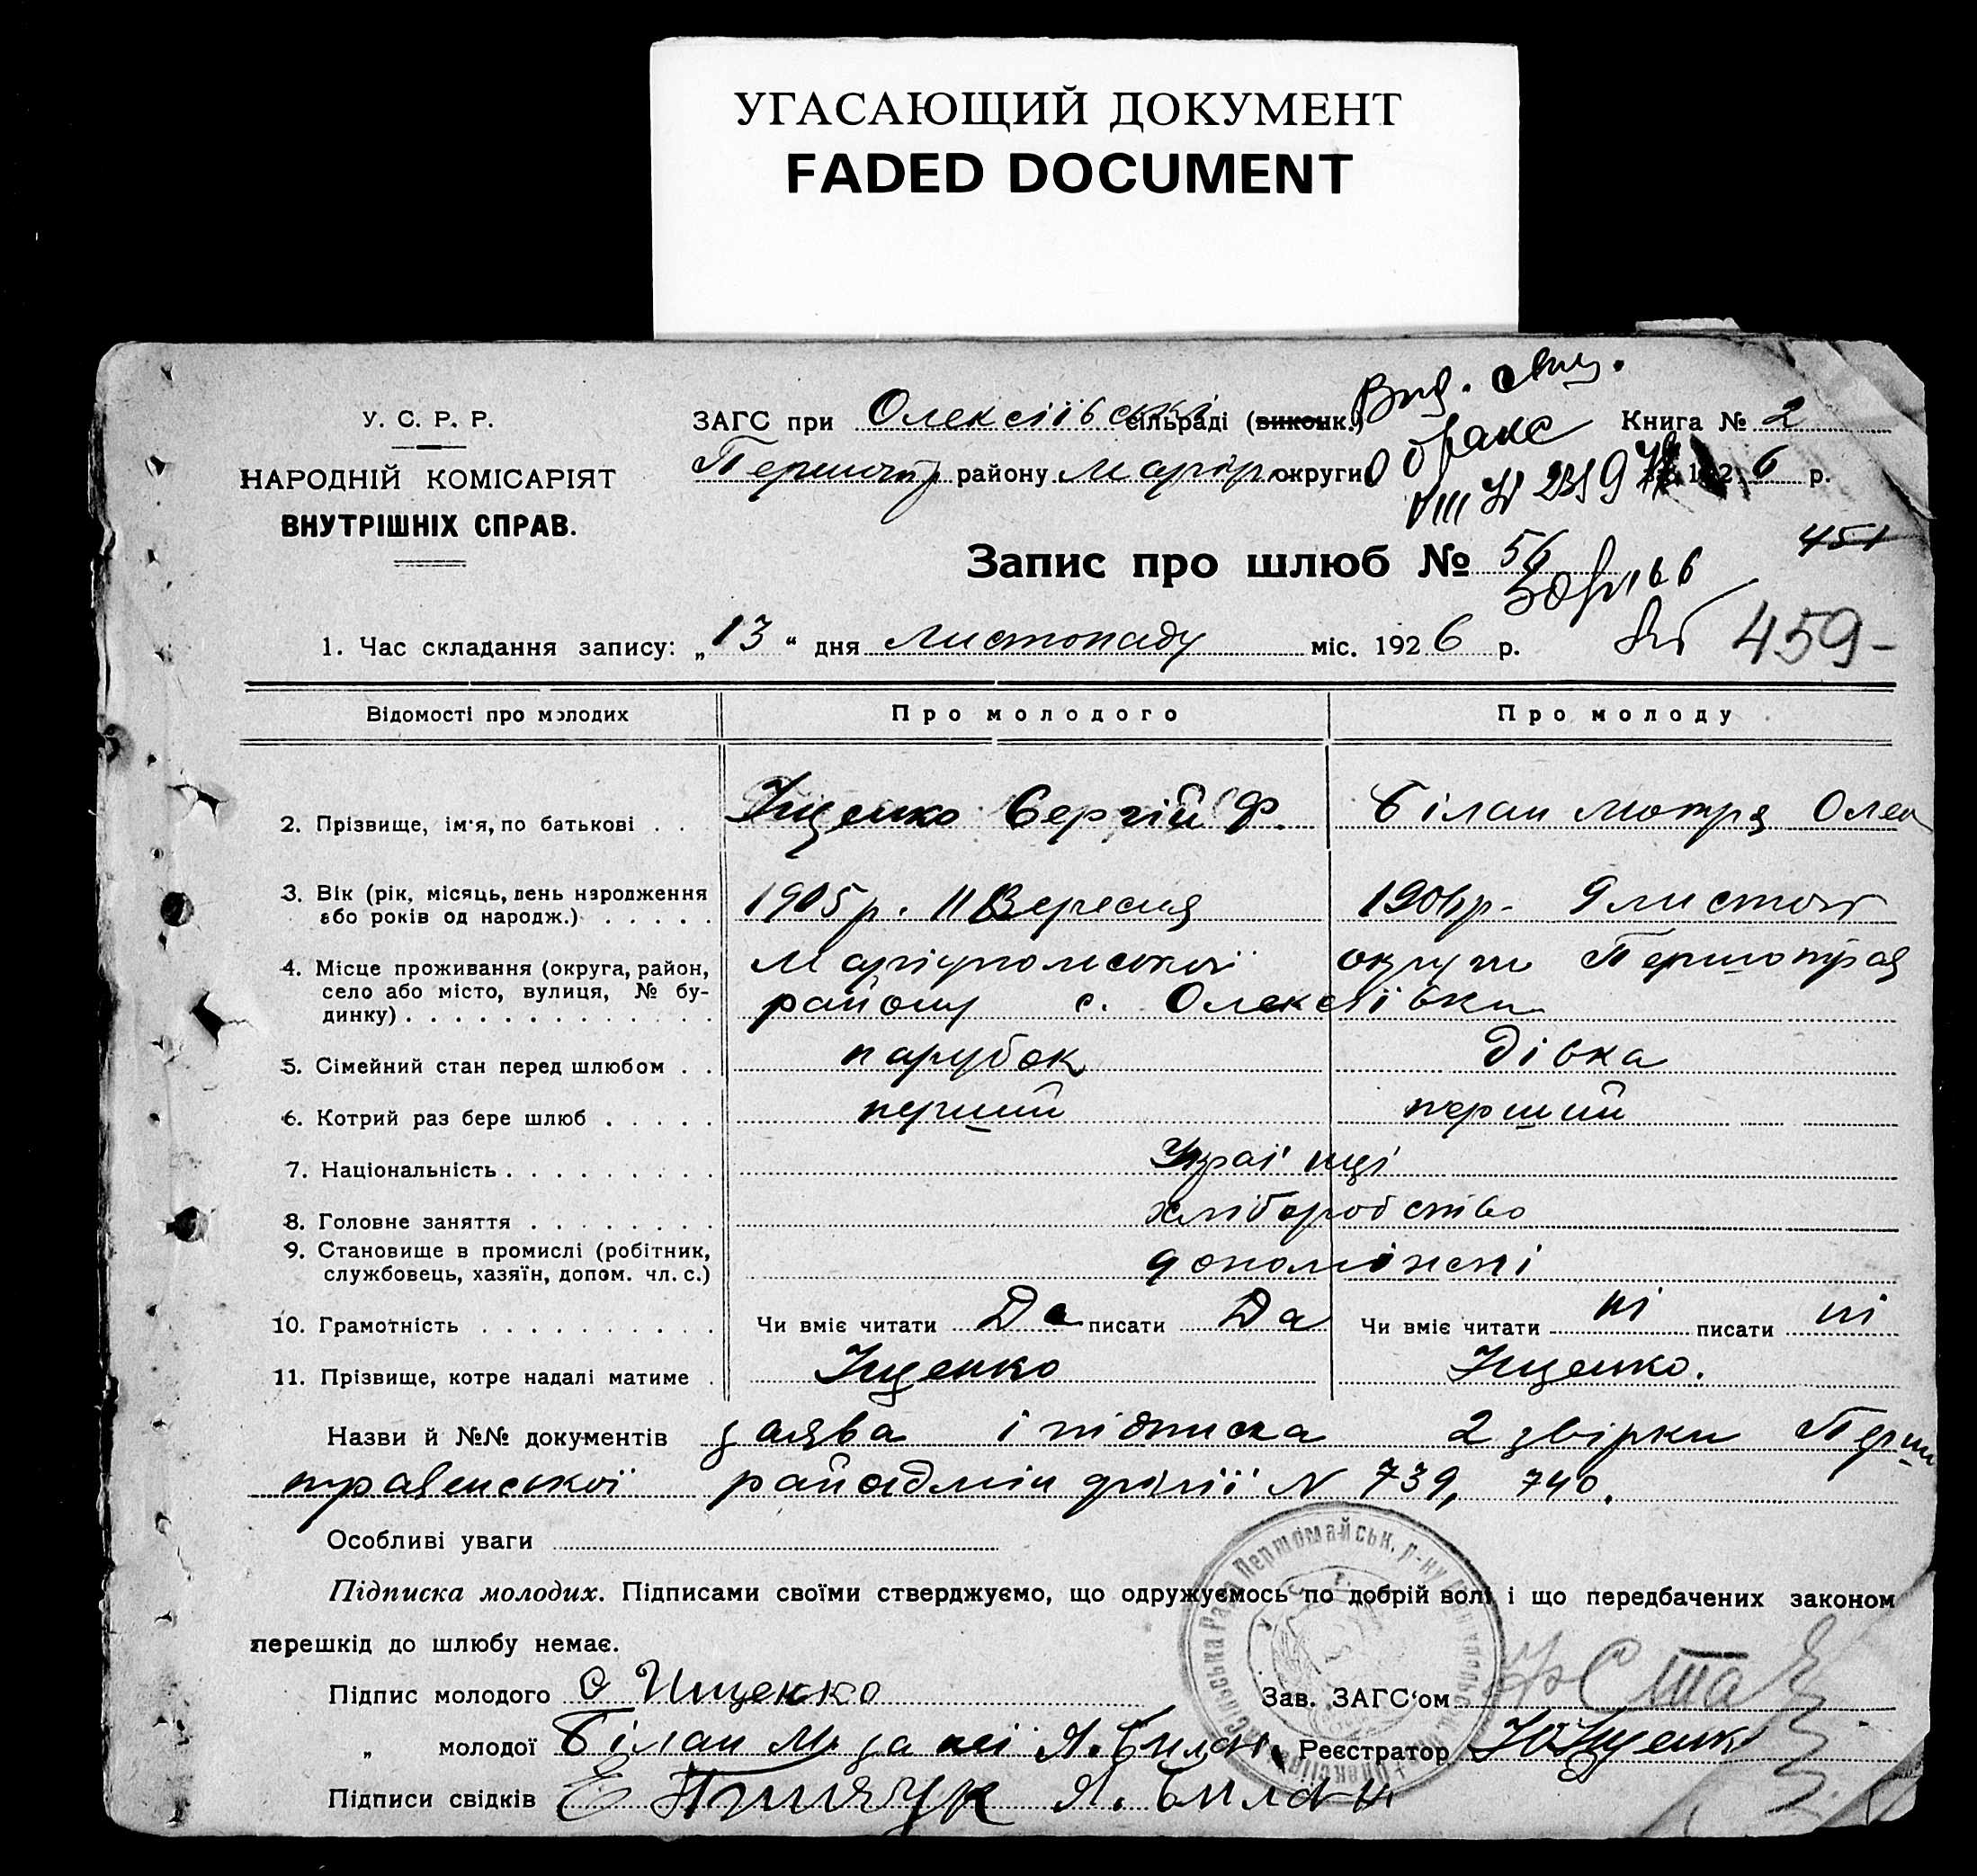 УГАСАЮЩИЙ ДОКУМЕНТ
FADED DOCUMENT
У. С. Р. Р.
НАРОДНІЙ КОМІСАРІЯТ
ВНУТРІШНІХ СПРАВ.
ЗАГС при Олексіївській сільраді (виконк.)
Книга № 2
району Маріуп округи
192 6 р.
Вид. свид.
о браке
Запис про шлюб № 56
451
459-
1. Час складання запису: „13“ дня Листопаду міс. 1926 р.
Відомості про молодих Про молодого Про молоду
2. Прізвище, ім'я, по батькові . . Іщенко Сергій Ф. Білан Мотря Олек
3. Вік (рік, місяць, день народження
або років од народж.) . . . . . 1905 р. 11 Вересня 1906 р. 9 листоп
4. Місце проживання (округа, район,
село або місто, вулиця, № бу-
динку) . . . . . . . . . . . . .
Маріупольської округи Першотрав
району с. Олексіївки
5. Сімейний стан перед шлюбом . . парубок дівка
6. Котрий раз бере шлюб . . . . . перший перший
7. Національність . . . . . . . . . Українці
8. Головне заняття . . . . . . . . хліборобство
9. Становище в промислі (робітник,
службовець, хазяїн, допом. чл. с.) допоміжні
10. Грамотність . . . . . . . . . . Чи вміє читати Да писати Да Чи вміє читати ні писати ні
11. Прізвище, котре надалі матиме . Іщенко Іщенко.
Назви й №№ документів заява і підписка 2 звірки Перш
травенської райадмін філії N 739, 740.
Особливі уваги
Підписка молодих. Підписами своїми стверджуємо, що одружуємось по добрій волі і що передбачених законом
перешкід до шлюбу немає.
Підпис молодого С Ищенко Зав. ЗАГС'ом
„ молодої Білан М. за неї Я. Билан Реєстратор Іщенко
Підписи свідків Е Я. Билан